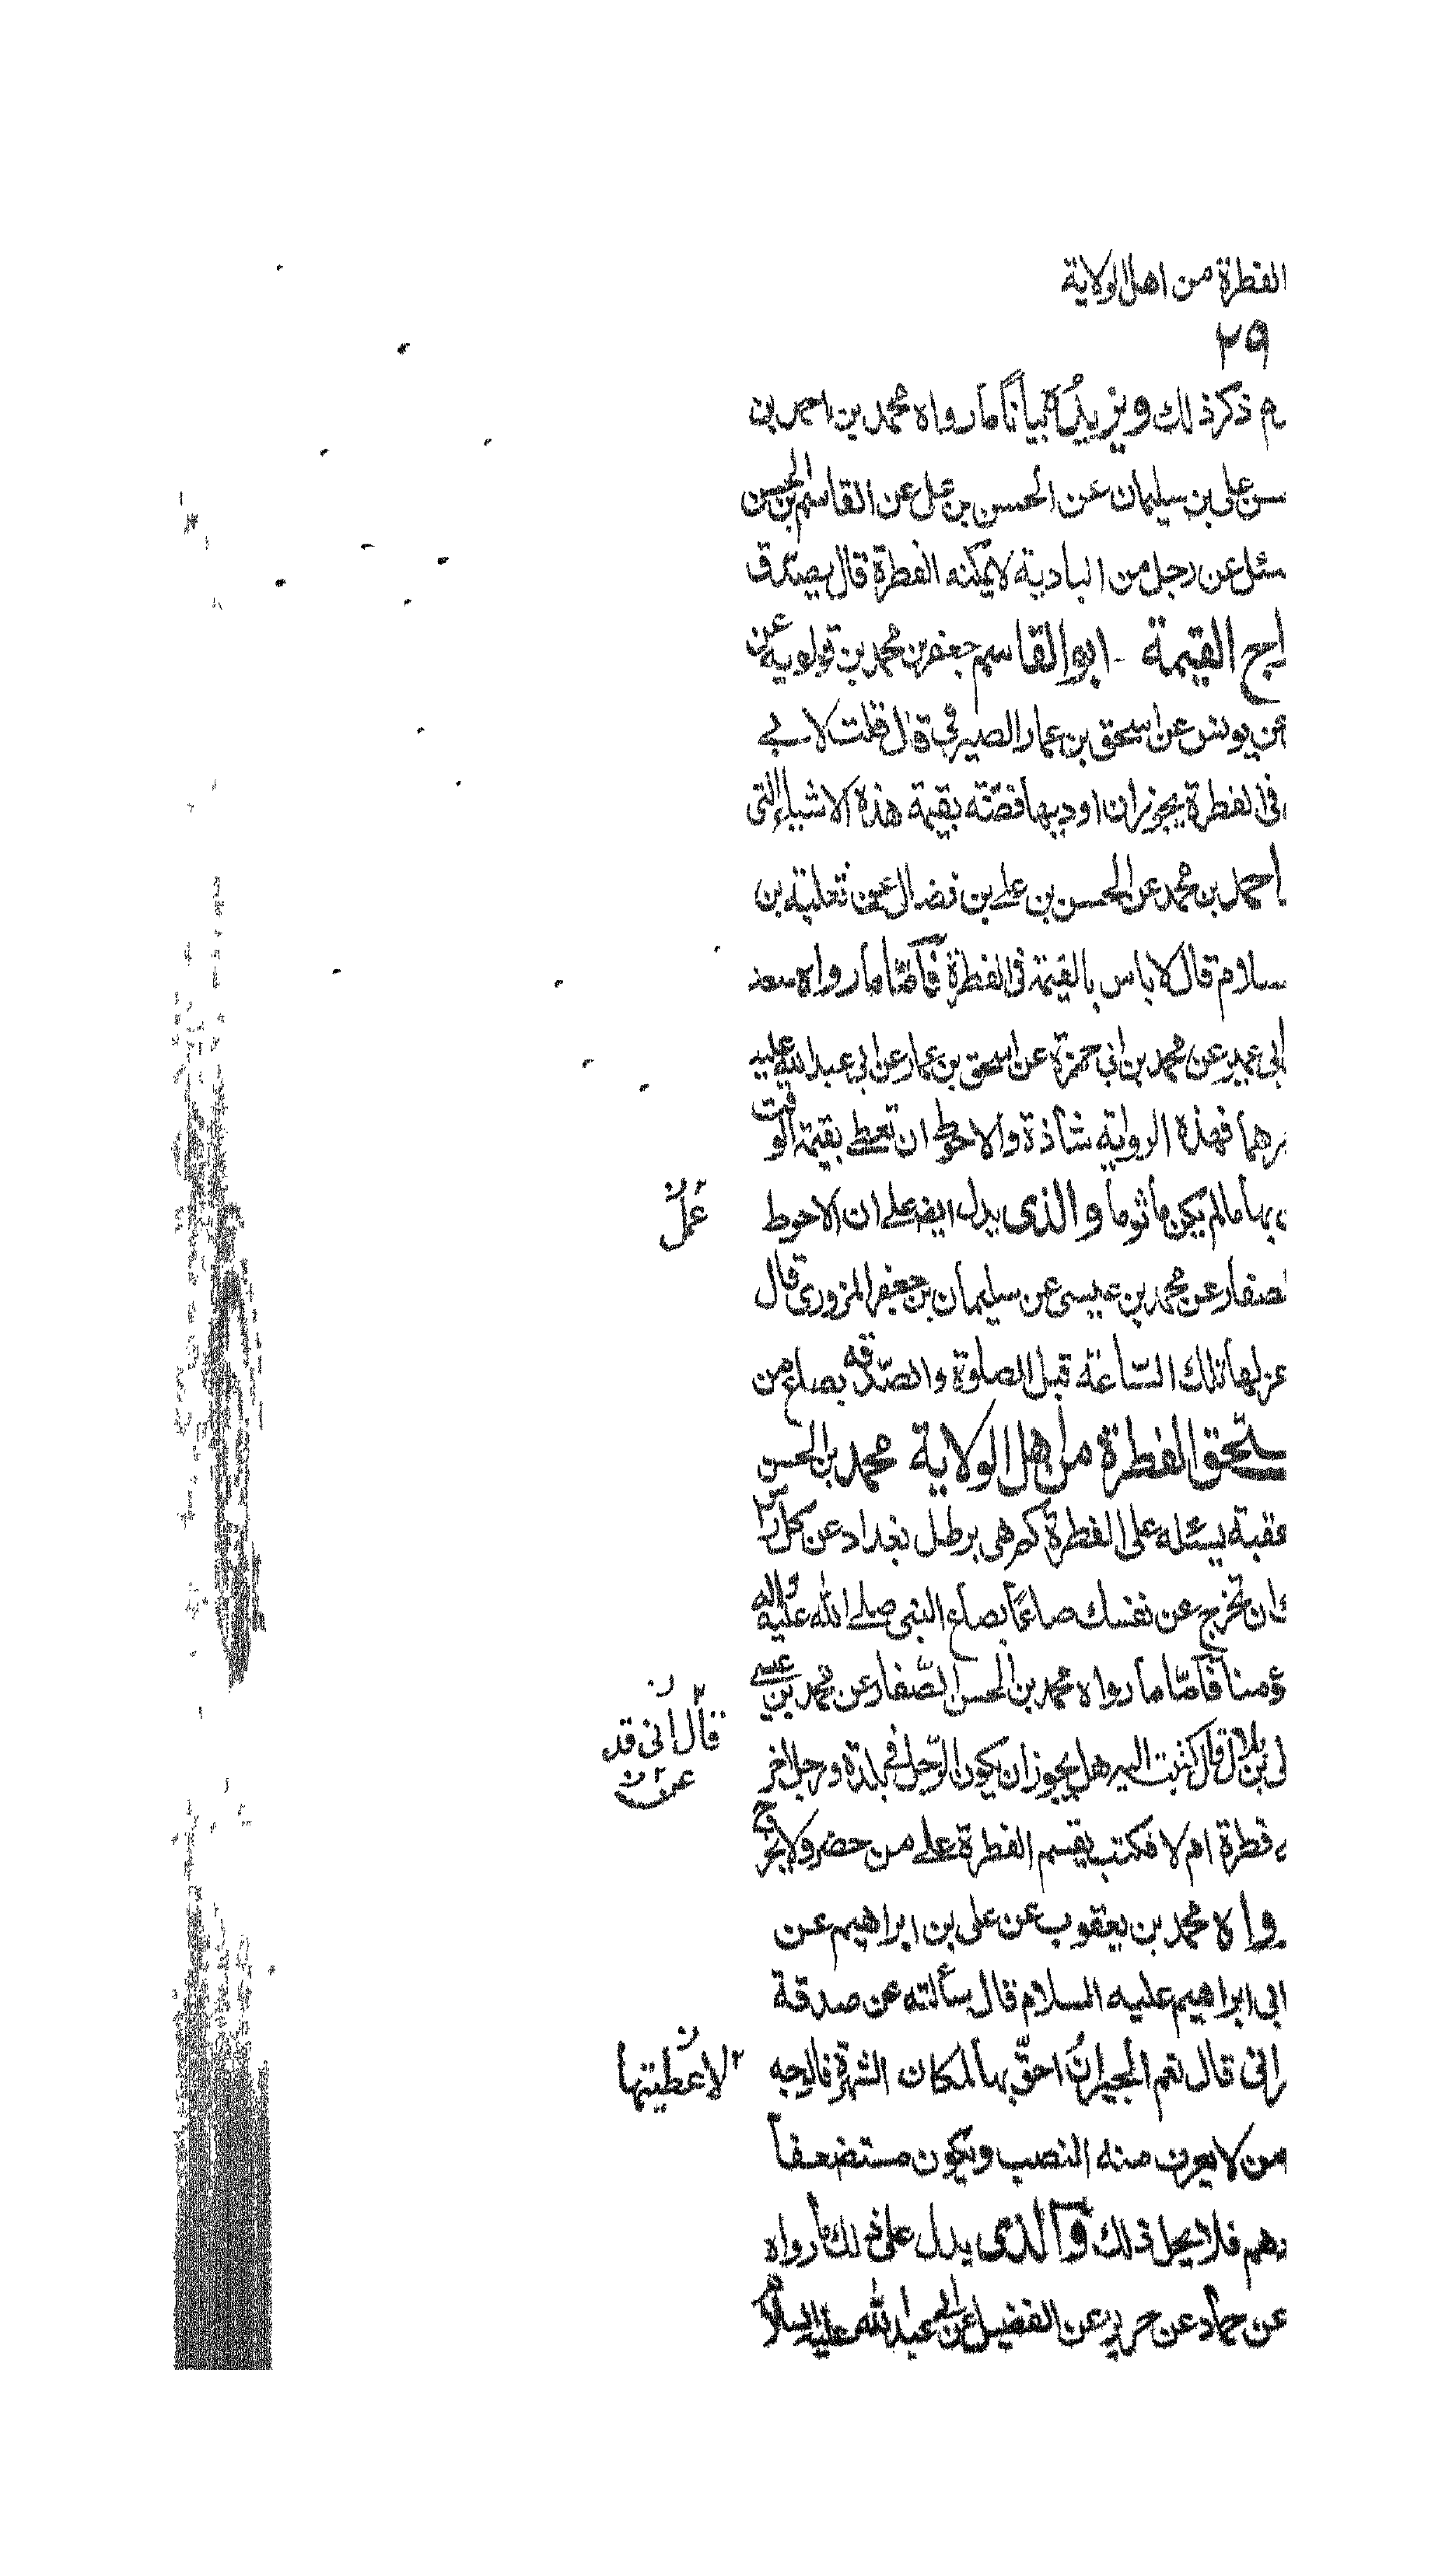 الفطرة من اهل الولاية
٢٩
ذكر ذلك ويزيده بيانا ما رواه محمد بن احمد بن
عن علي بن سليمان عن الحسن بن علي عن القاسم بن الحسن
سئل عن رجل من البادية لا يمكنه الفطرة قال يصدق
القيمة ابو القاسم جعفر بن محمد بن قولويه عن
عن يونس عن اسحق بن عمار الصيرفي قال قلت لابي
في الفطرة يجوز ان اوديها فضّة بقيمة هذه الاشياء التي
احمد بن محمد عن الحسن بن علي بن فضال عن ثعلبة بن
قال لا باس بالقيمة في الفطرة فامّا ما رواه سعد
ابي عمير عن محمد بن ابي حمزة عن اسحق بن عمار عن ابي عبد الله عليه
فهذه الرواية شاذة والاحوط ان تعطى بقيمة الوقت
بها ما لم يكن ماثوما والذى يدل ايض على ان الاحوط
عمل
الصفار عن محمد بن عيسى عن سليمان بن جعفر المزورى قال
عزلها تلك الساعة قبل الصلوة والصّدقه بصاع من
الفطرة من اهل الولاية محمد بن الحسن
عقبة يسئله على الفطرة كم هى برطل بغداد عن كل
ان تخرج عن نفسك صاعًا بصاع النبى صلى الله عليه واله
فامّا ما رواه محمد بن الحسن الصّفار عن محمد بن عيسى
قال انى قد
بن بلال قال كتبت اليه هل يجوز ان يكون الرّجل في بلدة ورجل اخر
فطرة ام لا فكتب يقسم الفطرة على من حضر ولا يخرج
محمد بن يعقوب عن على بن ابراهيم عن
ابى ابراهيم عليه السلام قال سألته عن صدقة
قال نعم الجيران احقّ بها لمكان الشهرة فالوجه
لا اعطيتها
من لا يعرف منه النصب ويكون مستضعفاً
فلا يحل ذلك والذى يدل على ذلك ما رواه
عن حماد عن حريز عن الفضيل عن ابى عبد الله عليه السلام